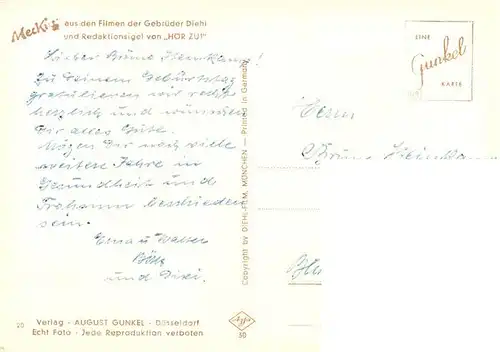 Mecki aus den Filmen der Gebrüder Diehl
und Redaktionsigel von „HÖR ZU!"
Lieber Bruno Steinkamp!
Zu Deinem Geburtstag
gratulieren wir recht
herzlich und wünschen
Dir alles Gute.
Mögen Dir noch viele
weitere Jahre in
Gesundheit und
Frohsinn beschieden
sein.
Erna u. Walter
und Dixi.
Copyright by DIEHL-FILM, MÜNCHEN — Printed in Germany
EINE
Gunkel
KARTE
Herrn
Bruno
20
Verlag - AUGUST GUNKEL - Düsseldorf
Echt Foto - Jede Reproduktion verboten
Agfa
50